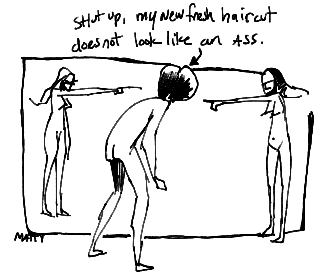 SHUT up, my new fresh haircut
does not look like an ASS.
MATT